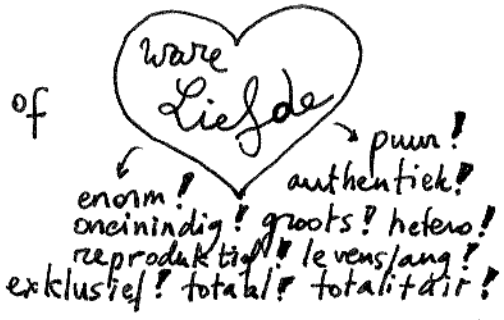 ware
Liefde
of
puur!
authentiek!
enorm!
oneinindig! groots! hetero!
reproduktief! levenslang!
exklusief! totaal! totalitair!